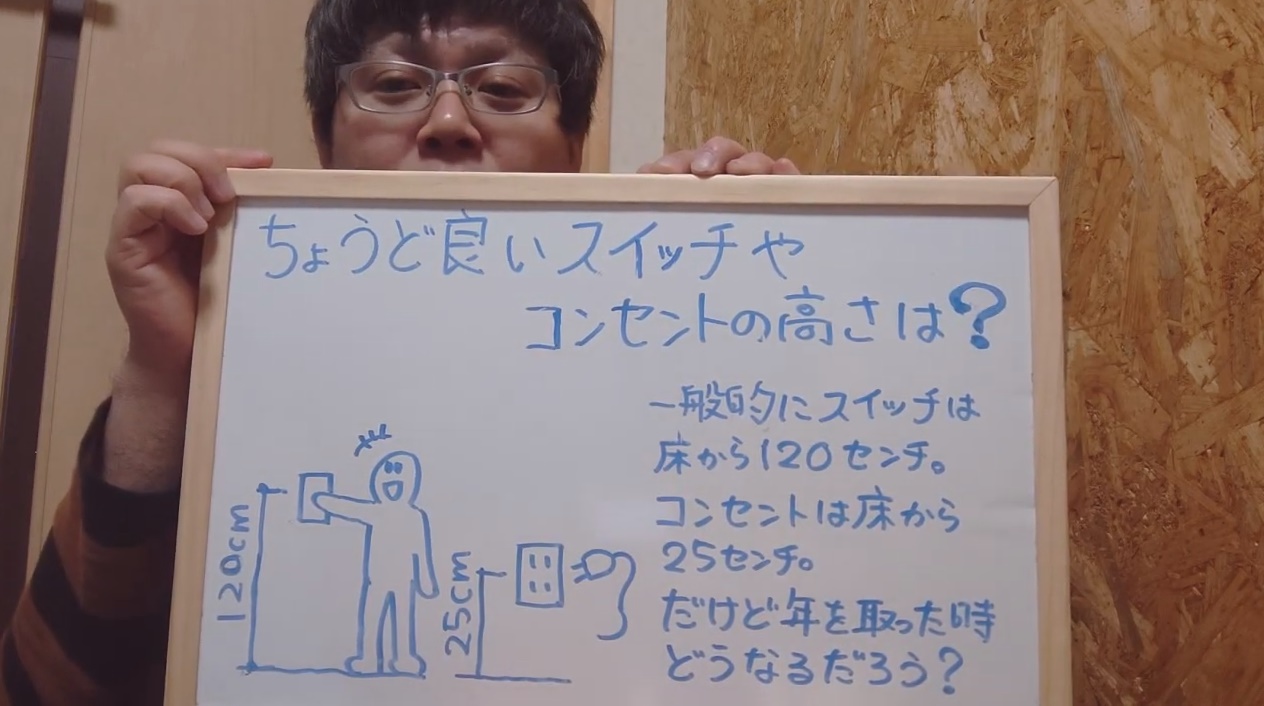 ちょうど良いスイッチや
コンセントの高さは?
一般的にスイッチは
床から120センチ。
コンセントは床から
25センチ。
だけど年を取った時
どうなるだろう?
120cm
25cm